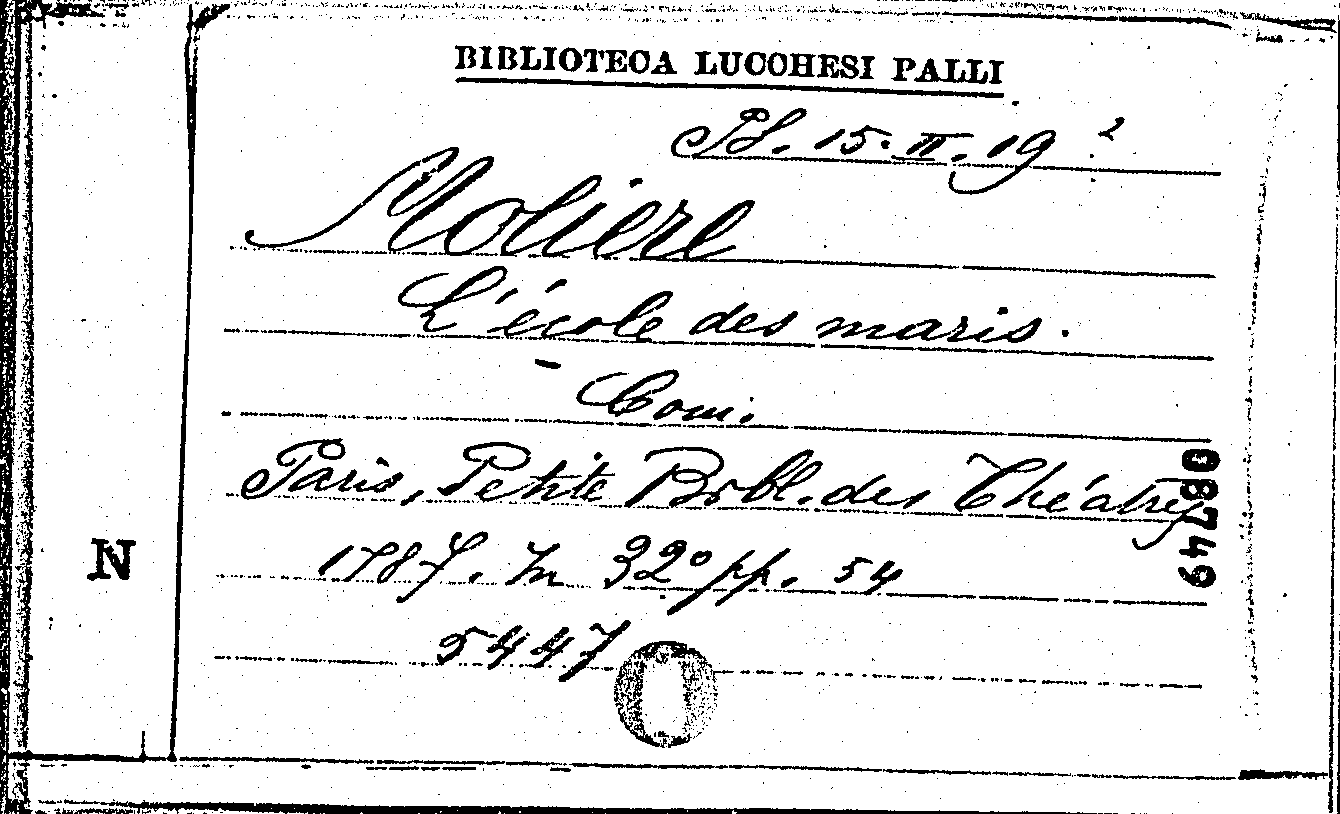 BIBLIOTECA LUCCHESI PALLI
Pd. 15. II. 19 2
Molière
L'école des maris.
Com.
Paris, Petite Bibl. des Théatres
1787. In 32° pp. 54
5447
N
08749